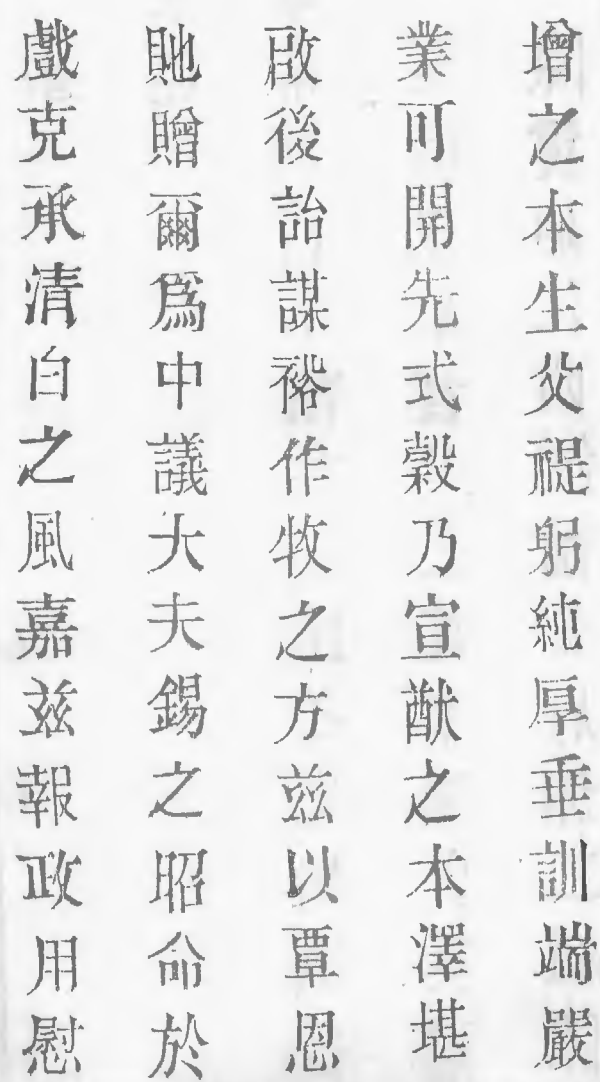 增之本生父禔躬純厚垂訓端嚴
業可開先式榖乃宣猷之本澤堪
啟後詒謀裕作牧之方茲以覃恩
貤贈爾爲中議大夫錫之昭命於
戲克承清白之風嘉茲報政用慰